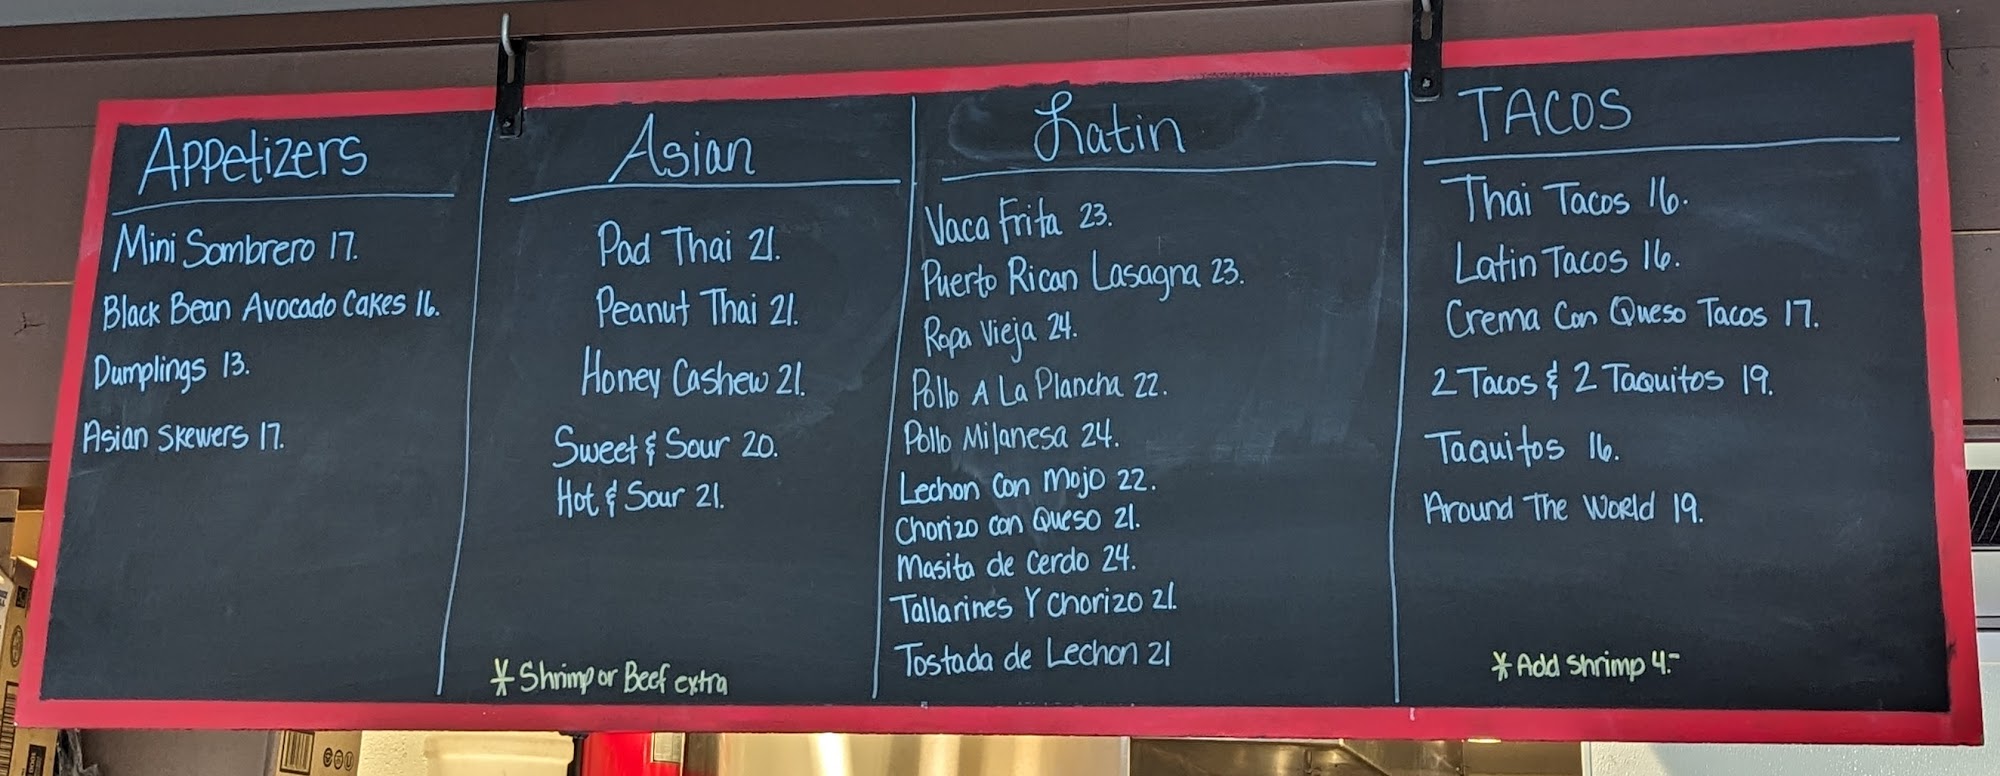 Appetizers
Mini Sombrero 17.
Black Bean Avocado Cakes 16.
Dumplings 13.
Asian Skewers 17.
Asian
Pad Thai 21.
Peanut Thai 21.
Honey Cashew 21.
Sweet & Sour 20.
Hot & Sour 21.
* Shrimp or Beef extra
Latin
Vaca Frita 23.
Puerto Rican Lasagna 23.
Ropa Vieja 24.
Pollo A La Plancha 22.
Pollo Milanesa 24.
Lechon Con Mojo 22.
Chorizo con Queso 21.
Masita de Cerdo 24.
Tallarines Y Chorizo 21.
Tostada de Lechon 21
TACOS
Thai Tacos 16.
Latin Tacos 16.
Crema Con Queso Tacos 17.
2 Tacos & 2 Taquitos 19.
Taquitos 16.
Around The World 19.
* Add shrimp 4.-